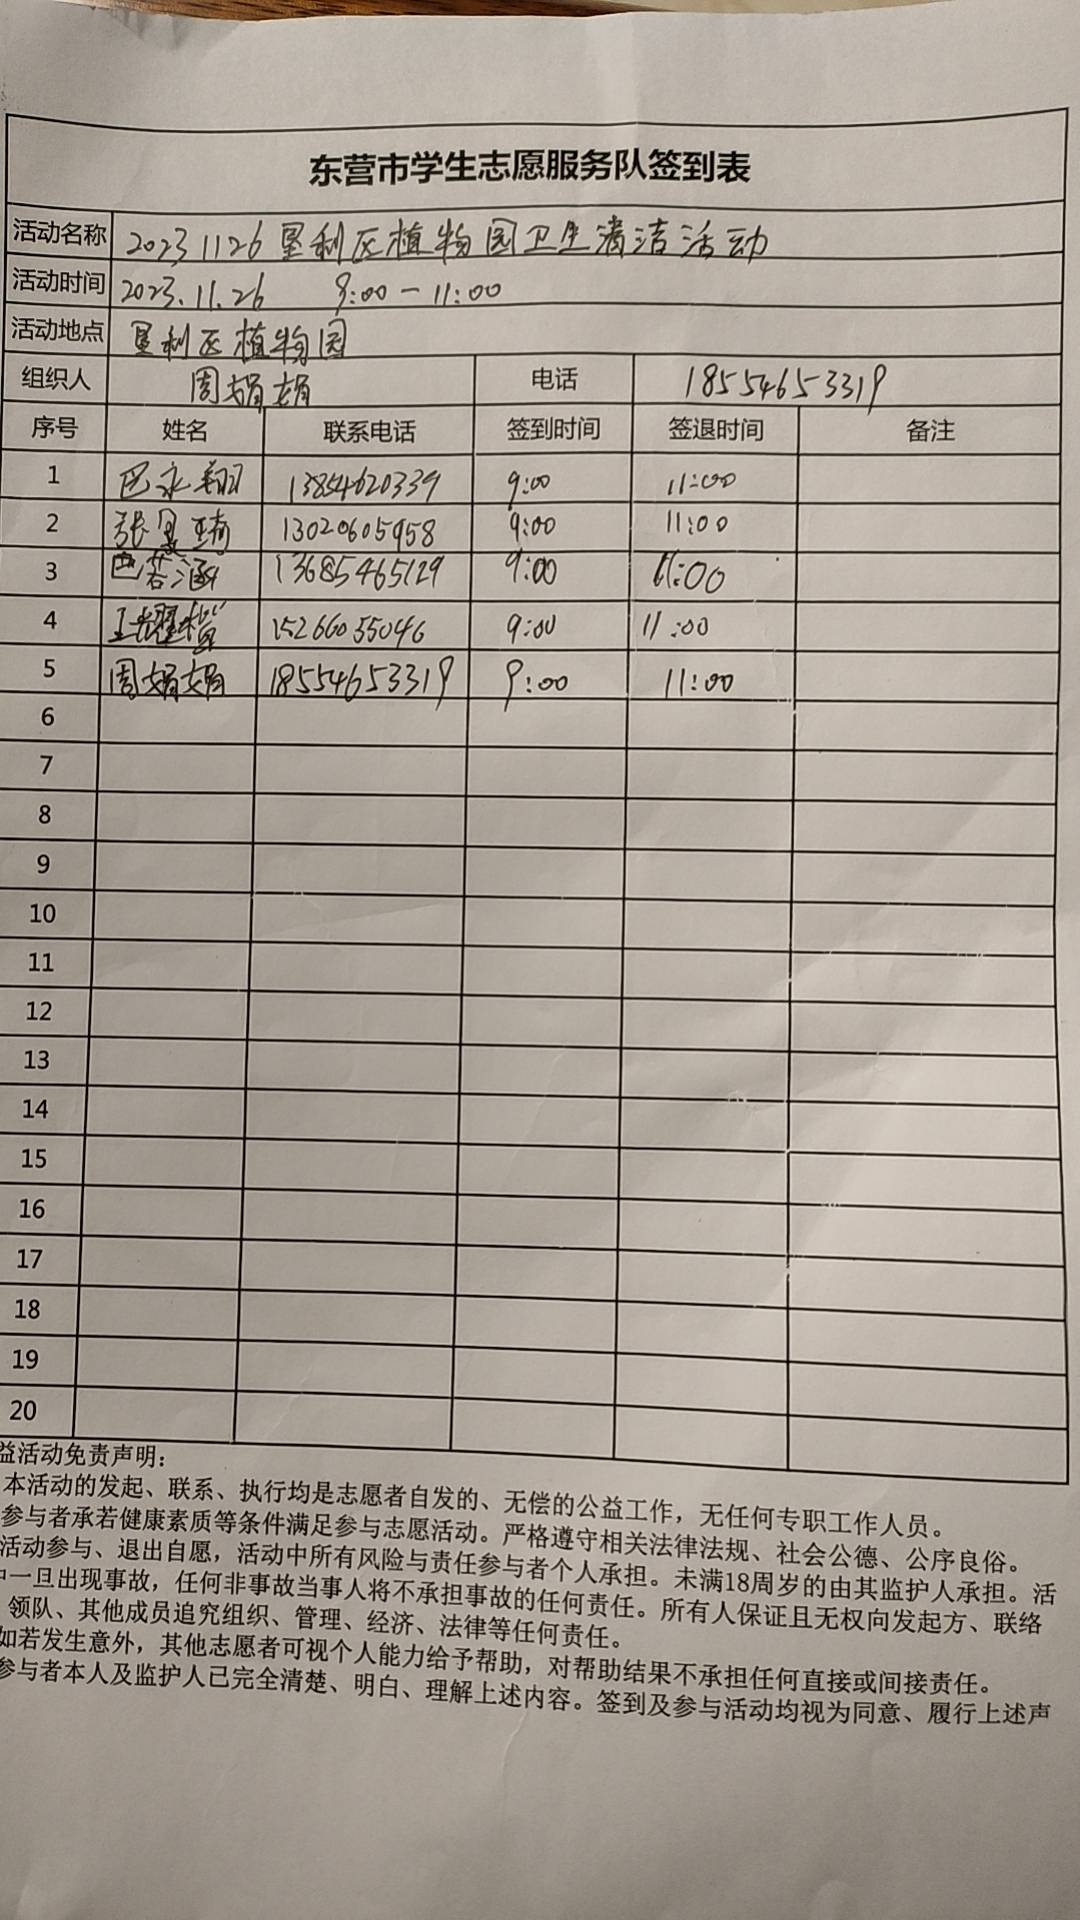 东营市学生志愿服务队签到表
活动名称 20231126垦利区植物园卫生清洁活动
活动时间 2023.11.26 9:00-11:00
活动地点 垦利区植物园
组织人 周娟娟 电话 18554653319
序号 姓名 联系电话 签到时间 签退时间 备注
1 巴永翔 13854620339 9:00 11:00
2 张 13020605958 9:00 11:00
3 巴若涵 13685465129 9:00 11:00
4 王耀 15266055046 9:00 11:00
5 周娟娟 18554653319 9:00 11:00
6
7
8
9
10
11
12
13
14
15
16
17
18
19
20
益活动免责声明:
本活动的发起、联系、执行均是志愿者自发的、无偿的公益工作，无任何专职工作人员。
参与者承若健康素质等条件满足参与志愿活动。严格遵守相关法律法规、社会公德、公序良俗。
活动参与、退出自愿，活动中所有风险与责任参与者个人承担。未满18周岁的由其监护人承担。活
中一旦出现事故，任何非事故当事人将不承担事故的任何责任。所有人保证且无权向发起方、联络
领队、其他成员追究组织、管理、经济、法律等任何责任。
如若发生意外，其他志愿者可视个人能力给予帮助，对帮助结果不承担任何直接或间接责任。
参与者本人及监护人已完全清楚、明白、理解上述内容。签到及参与活动均视为同意、履行上述声